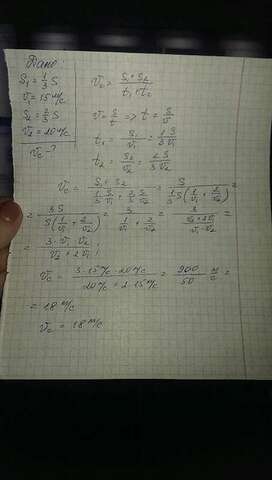 Дано
S₁ = 1/3 S
v₁ = 15 м/с
S₂ = 2/3 S
v₂ = 20 м/с
vc - ?
vc = (S₁ + S₂)/(t₁ + t₂)
v = S/t => t = S/v
t₁ = S₁/v₁ = 1/3 S/v₁
t₂ = S₂/v₂ = 2/3 S/v₂
vc = (S₁ + S₂)/(1/3 S/v₁ + 2/3 S/v₂) = S/(1/3 S(1/v₁ + 2/v₂)) =
= 3S/(S(1/v₁ + 2/v₂)) = 3/(1/v₁ + 2/v₂) = 3/((v₂ + 2v₁)/(v₁·v₂)) =
= (3·v₁·v₂)/(v₂ + 2v₁);
vc = (3·15 м/с·20 м/с)/(20 м/с + 2·15 м/с) = 900/50 м/с =
= 18 м/с
vc = 18 м/с